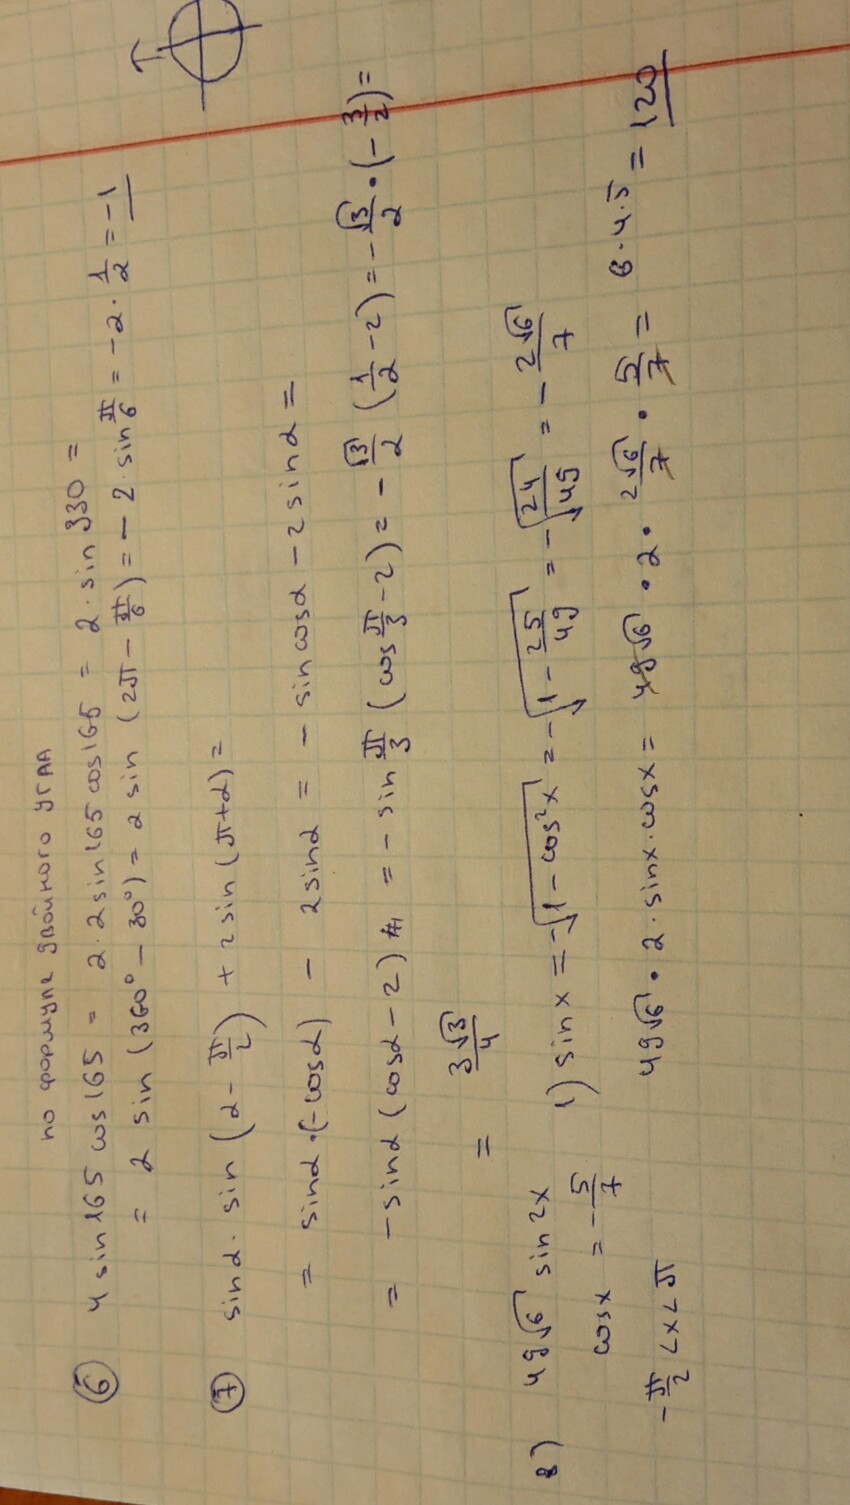 по формуле двойного угла
⑥ 4 sin 165 cos 165 = 2·2 sin 165 cos 165 = 2·sin 330 =
= 2 sin (360° − 30°) = 2 sin (2π − π/6) = − 2·sin π/6 = −2·1/2 = −1
⑦ sin α · sin (α − π/2) + 2 sin (π+α) =
= sin α ·(−cos α) − 2 sin α = − sin cos α − 2 sin α =
= − sin α (cos α − 2) = − sin π/3 (cos π/3 − 2) = − √3/2 (1/2 − 2) = − √3/2 · (− 3/2) =
= 3√3/4
8) 49√6 sin 2x 1) sin x = −√(1 − cos²x) = −√(1 − 25/49) = −√(24/49) = − 2√6/7
cos x = − 5/7
− π/2 < x < π 49√6 · 2 · sin x · cos x = 49√6 · 2 · 2√6/7 · 5/7 = 6·4·5 = 120